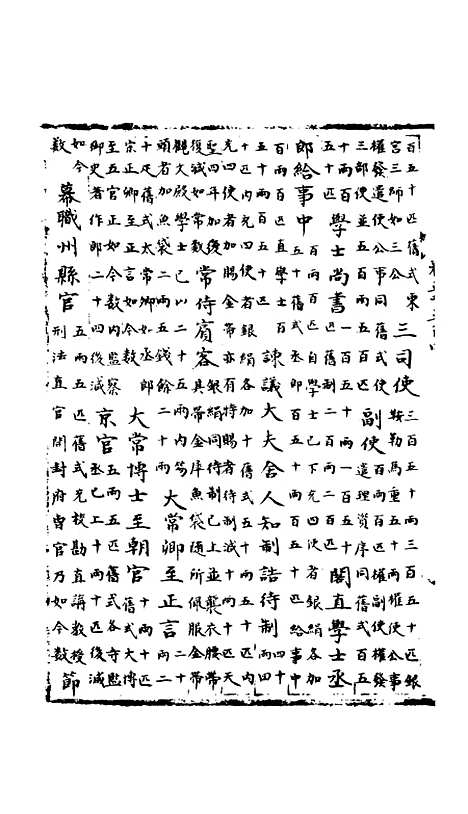 百五十匹舊式東
宮三師如三公
三司使
三百五十兩三百五十匹銀
鞍勒馬重五十兩權使公事
權發遣使公事同舊式使
三部使並五百匹五百
副使
百兩百匹權副使權發
遣理資序同舊式百五
十兩百
五十匹
學士尚書
閣直學士丞
郎給事中
百兩百匹自學士已下充四使者銀絹各加
五十舊式丞郎百五十兩百五十匹給事中
百兩百匹直學士百
五十兩百五十匹
諫議大夫舍人知制誥待制
四十
兩四
十匹內充四使者銀絹各十舊式五十兩五十匹內
充四使者加賜金帶亦有特賜者待制減十兩十匹天
聖四年加後
復減如常數
常侍賓客
銀絹同待制已上並襲衣金腰帶
具帶金魚袋隨所佩服金帶
觀文殿學士已
頭者加魚袋
大常卿至正言
二十
兩二
十匹舊式太常卿如丞郎
宗正卿至正言如今數
大常博士至朝官
十兩十匹
舊式大博
至五官正如今數內監察
御史著作郎二十四後減
京官
五兩五匹舊式各寺監
丞已上十兩十匹後減
如今
數
幕職州縣官
五兩五匹舊式充校勘直講教授
刑法直官開封府曹官乃如今數
節